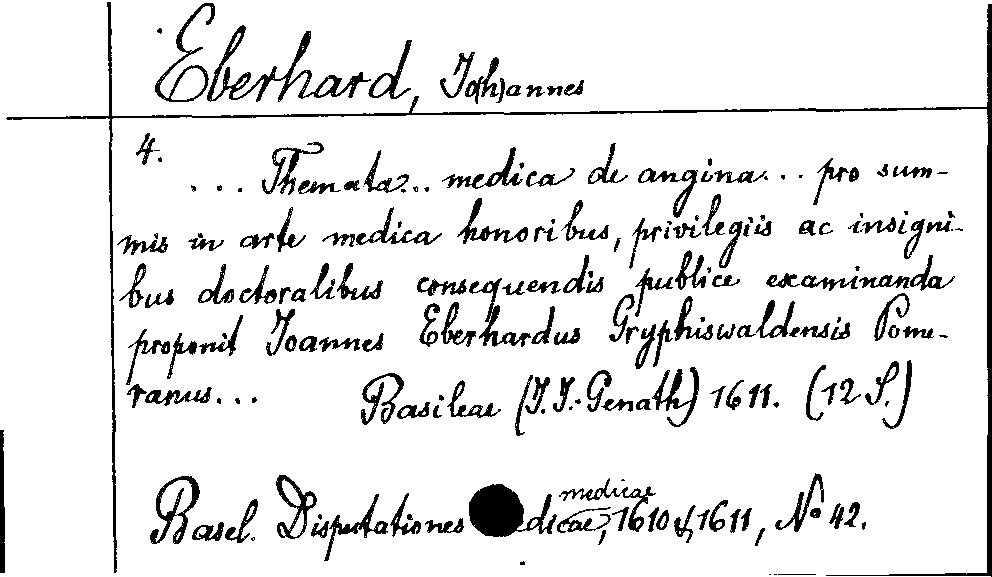 Eberhard, Jo(h)annes
4.
... Themata... medica de angina... pro sum-
mis in arte medica honoribus, privilegiis ac insigni-
bus doctoralibus consequendis publice examinanda
proponit Joannes Eberhardus Gryphiswaldensis Pome-
ranus...
Basileae (J. J. Genath) 1611. (12 S.)
medicae
Basel. Disputationes dicae, 1610 & 1611, No 42.